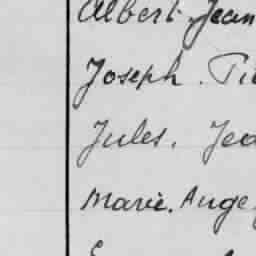 Albert, Jean
Joseph. Pi
Jules. Jea
Marie. Ange